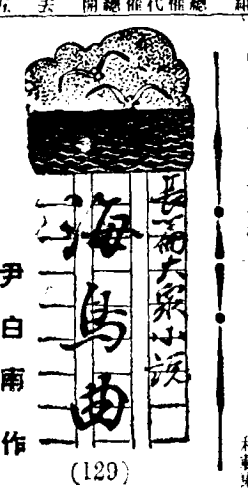 長篇大衆小說
海鳥曲
尹白南 作
(129)